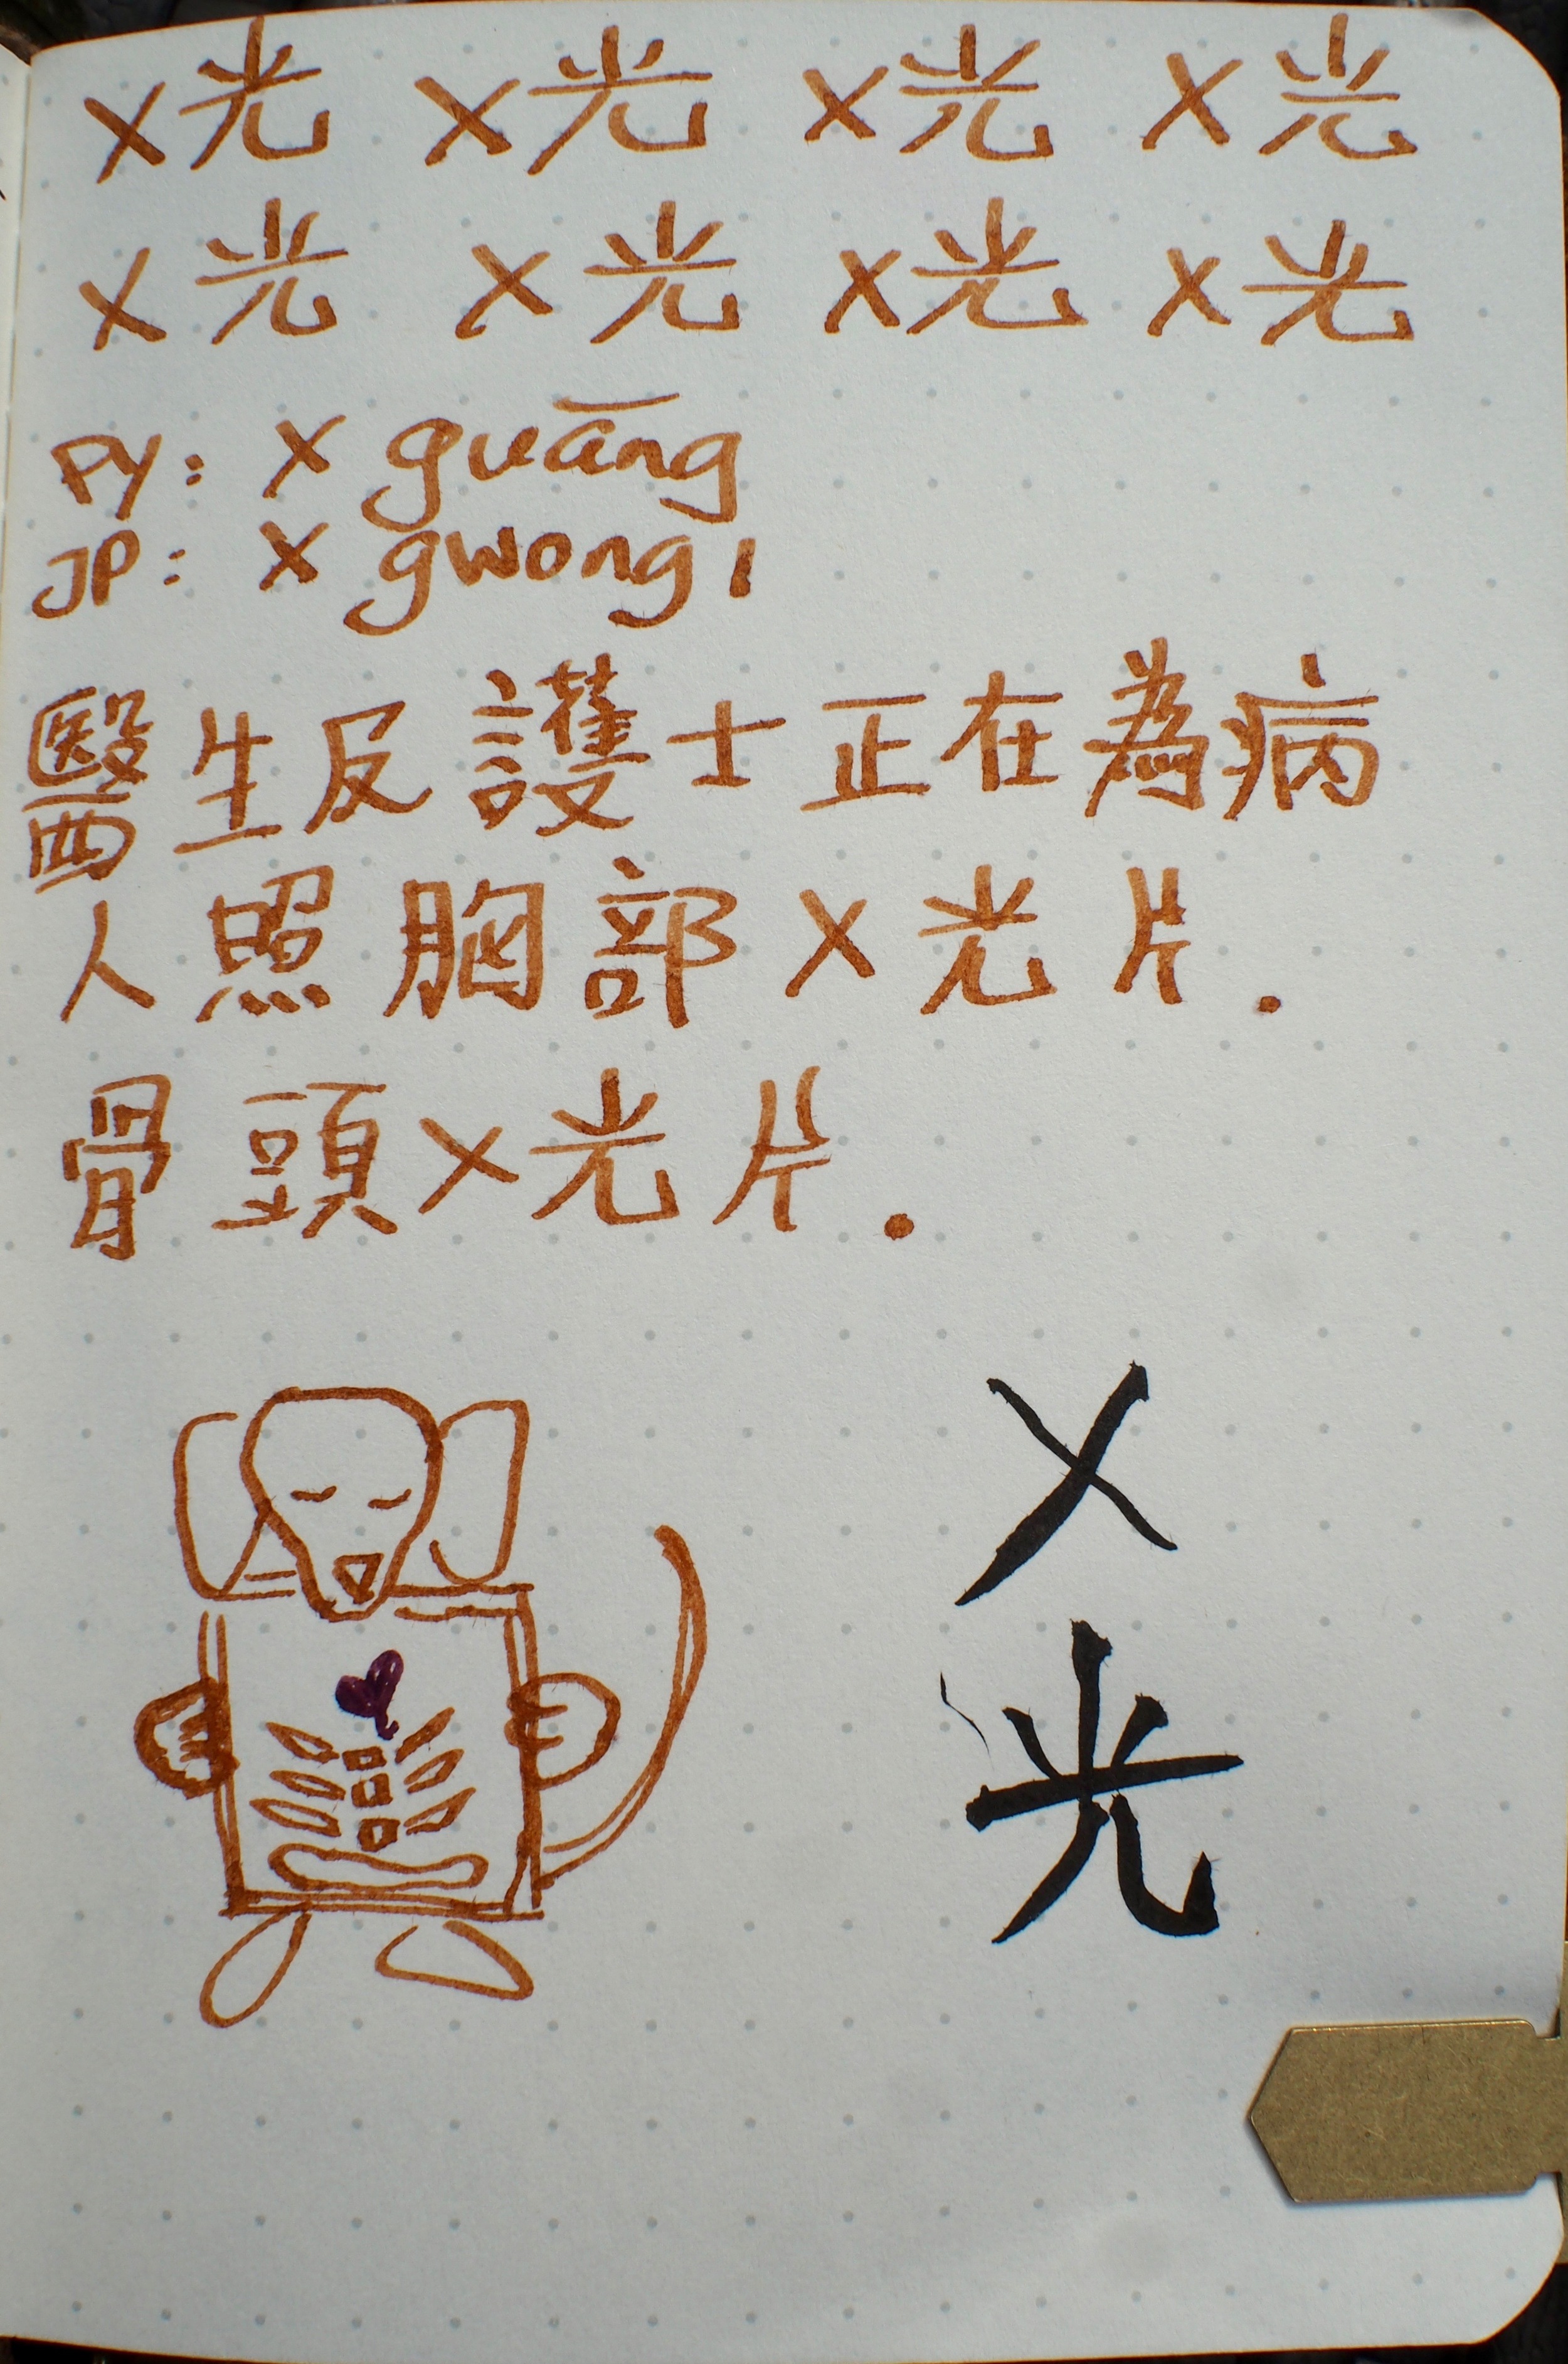 X光 X光 X光 X光
X光 X光 X光 X光
PY: X guāng
JP: X gwong1
醫生反護士正在為病
人照胸部X光片.
骨頭X光片.
X
光